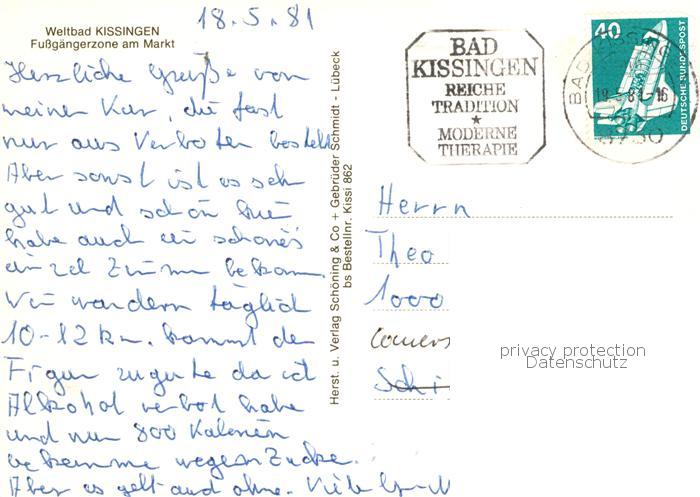 18.5.81
Weltbad KISSINGEN
Fußgängerzone am Markt
Herzliche Grüße von
meiner Kur, die fast
nur aus Verboten besteht
Aber sonst ist es sehr
gut und schön hier
habe auch ein schönes
einzel Zimmer bekomm.
Wir wandern täglich
10-12 km. kommt der
Figur zugute da ich
Alkohol verbot habe
und nur 800 Kalorien
bekomme wegen Zucker.
Aber es geht auch ohne. Viele
Herst. u. Verlag Schöning & Co + Gebrüder Schmidt - Lübeck
bs Bestellnr. Kissi 862
BAD
KISSINGEN
REICHE
TRADITION
★
MODERNE
THERAPIE
40
DEUTSCHE BUNDESPOST
Herrn
Theo
1000
privacy protection
Datenschutz